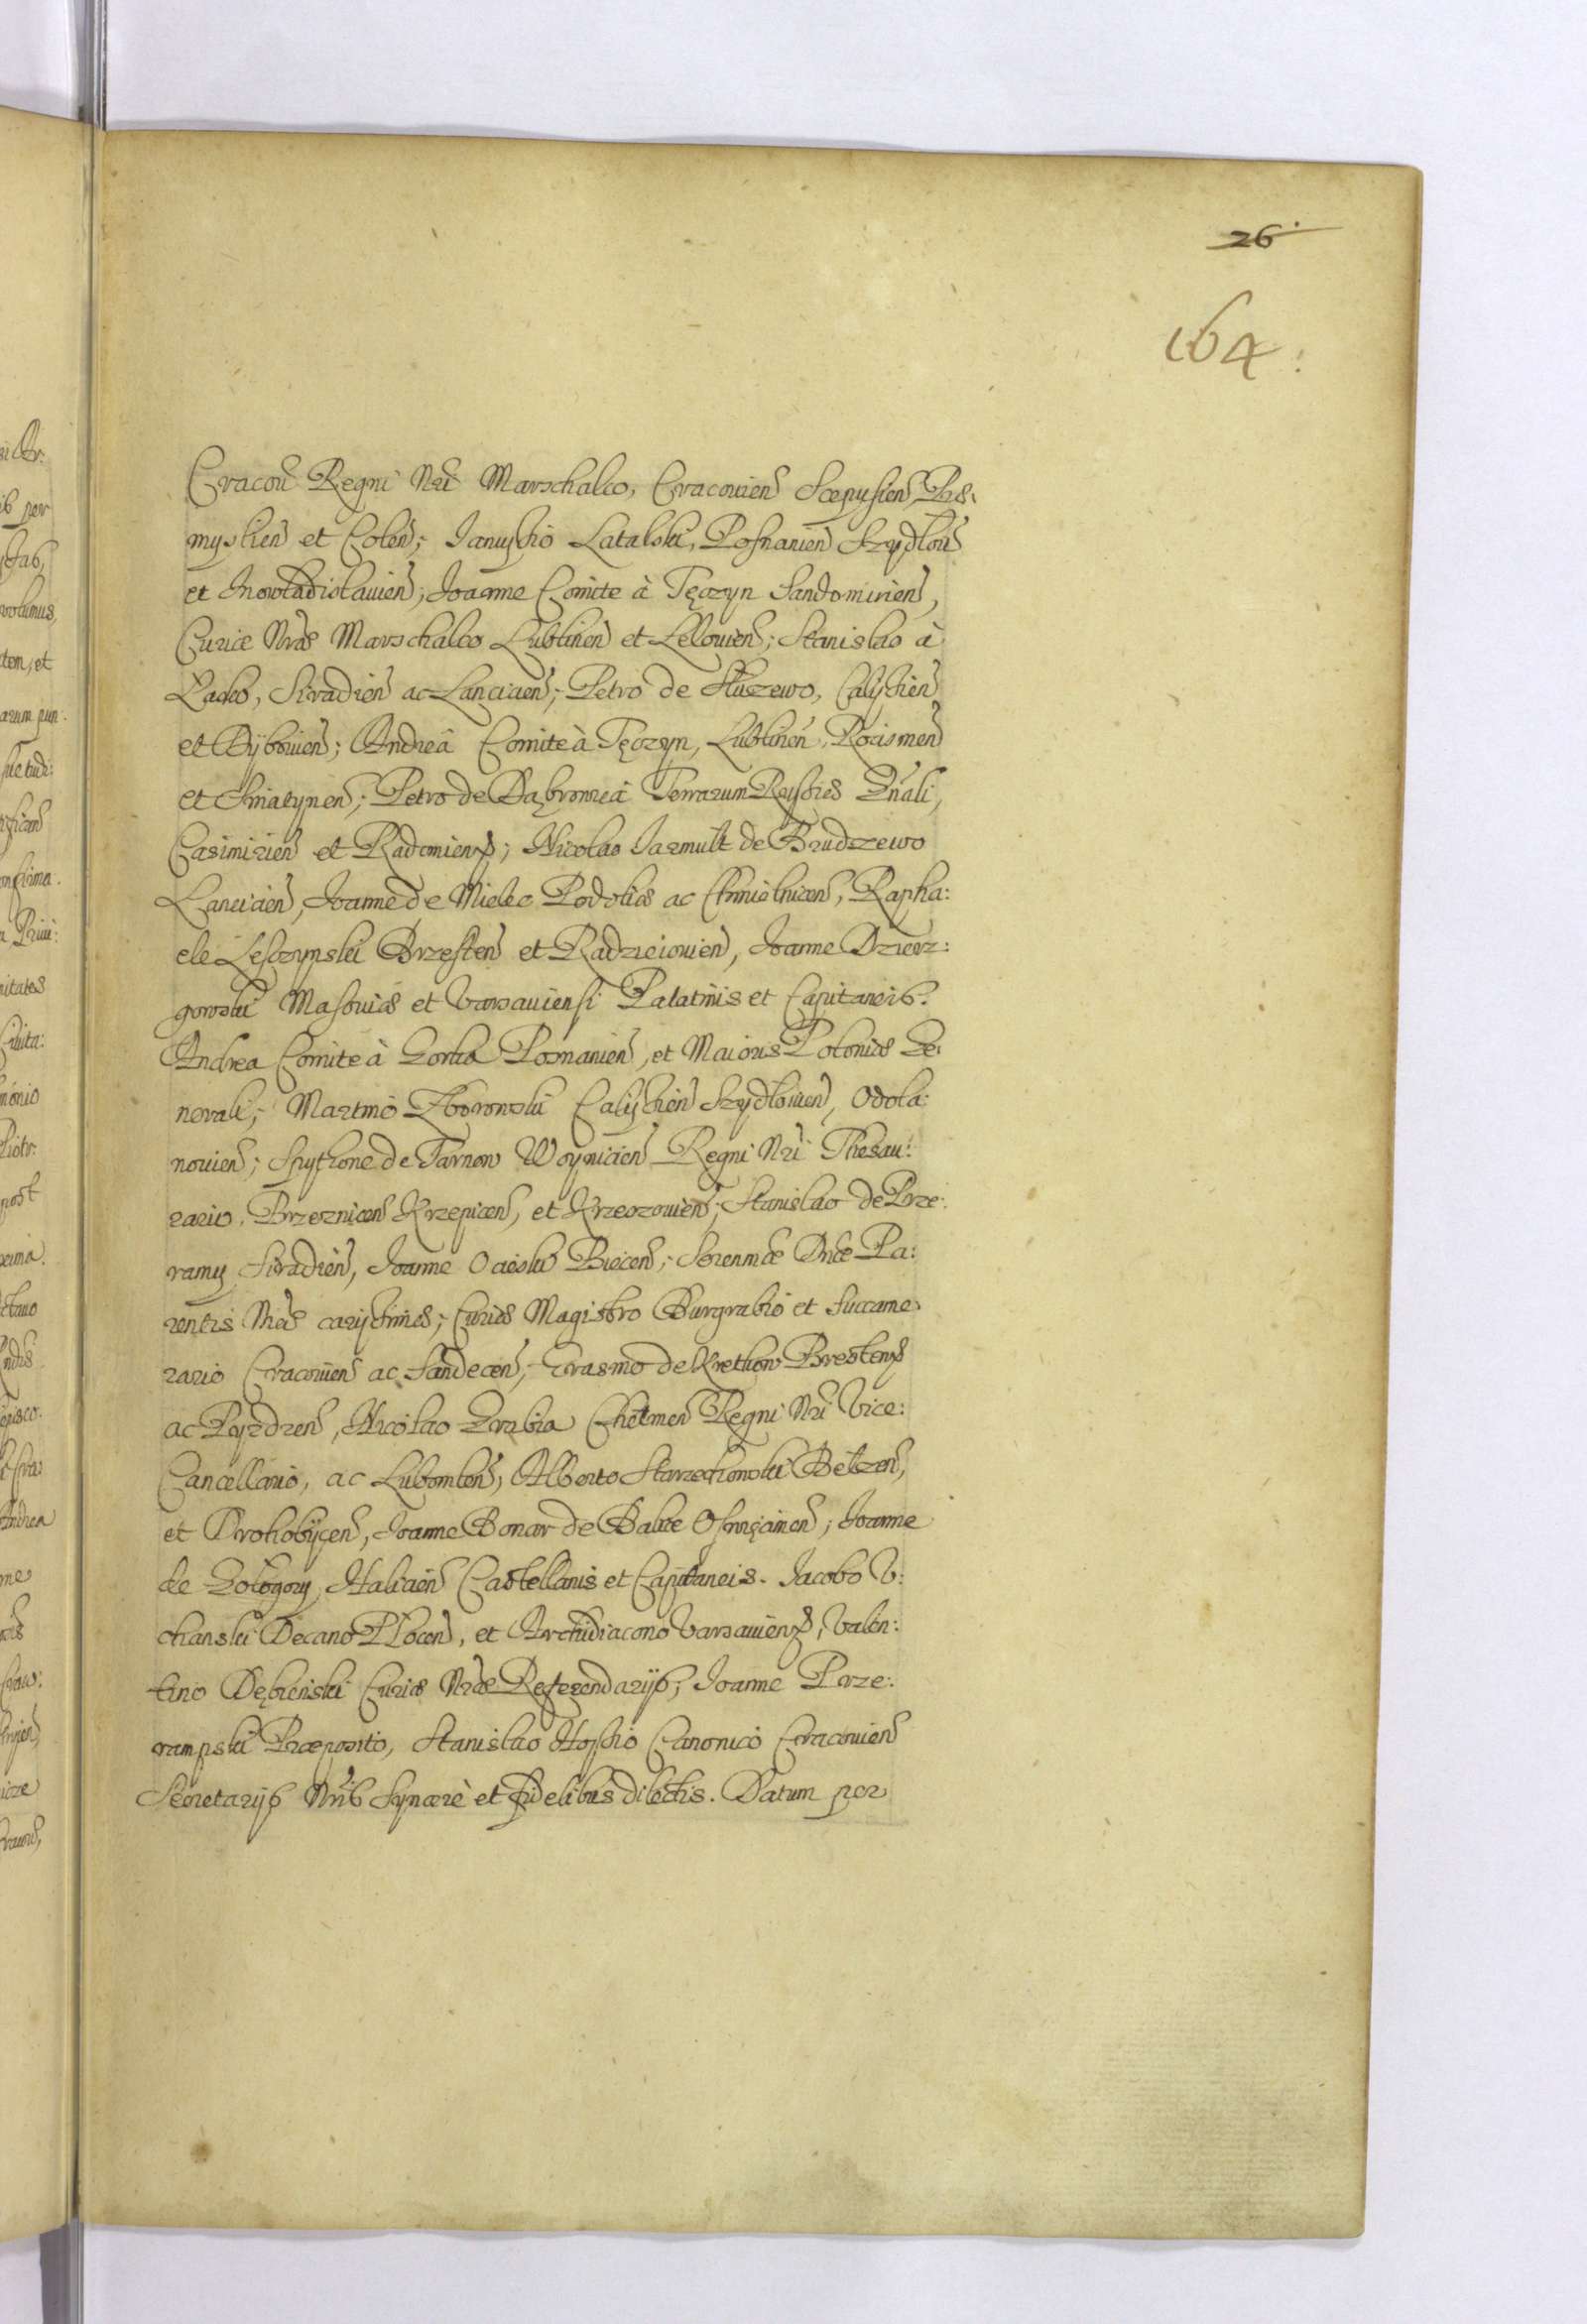 26.
164.
Cracoŭ Regni Nri Marschalco, Cracouien Scepusien, Prȩ-
mysl̃ien et Colen; Januschio Latalski, Posnanien Szydlou
et Inowladislauien; Joanne Comite à Tęczyn Sandomirien,
Curiæ Nræ Marschalco Lublinen et Lelouien; Stanislao à
Lasko, Siradien ac Lancicien; Petro de Służewo, Calischien
et Dÿbouien; Andreâ Comite à Tęczyn, Lublinen,
et Sniatynen; Petro de Dąbrowicâ Terrarum Russiæ Gnali,
Casimirien et Radomiens; Nicolao Jarmult de Brudzewo
Lancicien, Joanne de Mielec Podoliæ ac Chmielnicen, Rapha:
ele Lesczynski Brzesten et Radzieiouien, Joanne Dzierz:
gowski Masouiæ et Varsauiensi Palatinis et Capitaneis.
Andrea Comite à Gorka Posnanien, et Maioris Poloniæ Ge-
nerali; Martino Zborowski Calischien Szydlouien, Odola:
nouien; Spythone de Tarnow Woynicien Regni Nri Thesau:
rario, Brzeznicen Krzepicen, et Krzeczouien; Stanislao de Prze:
ramy Siradien, Joanne Ocieski Biecen; Serenmæ Dnæ Pa:
rentis Nræ carissimæ; Curiæ Magistro Burgrabio et Succame-
rario Cracouien ac Sandecen; Erasmo de Kretkow Brestens
ac Pyzdren, Nicolao Grabia Chelmen Regni Nri Vice:
Cancellario, ac Lubomlen; Alberto Starzechowski Belzen,
et Drohobÿcen, Joanne Bonar de Balice Osswięcimen; Joanne
de Gologory Halicien Castellanis et Capitaneis. Jacobo V:
chanski Decano Plocen, et Archidiacono Varsauiens, Valen:
tino Dębienski Curiæ Nræ Referendarijs; Joanne Prze:
rampski Præposito, Stanislao Hosio Canonico Cracouien
Secretarijs Nris Syncerè et Fidelibus dilectis. Datum per